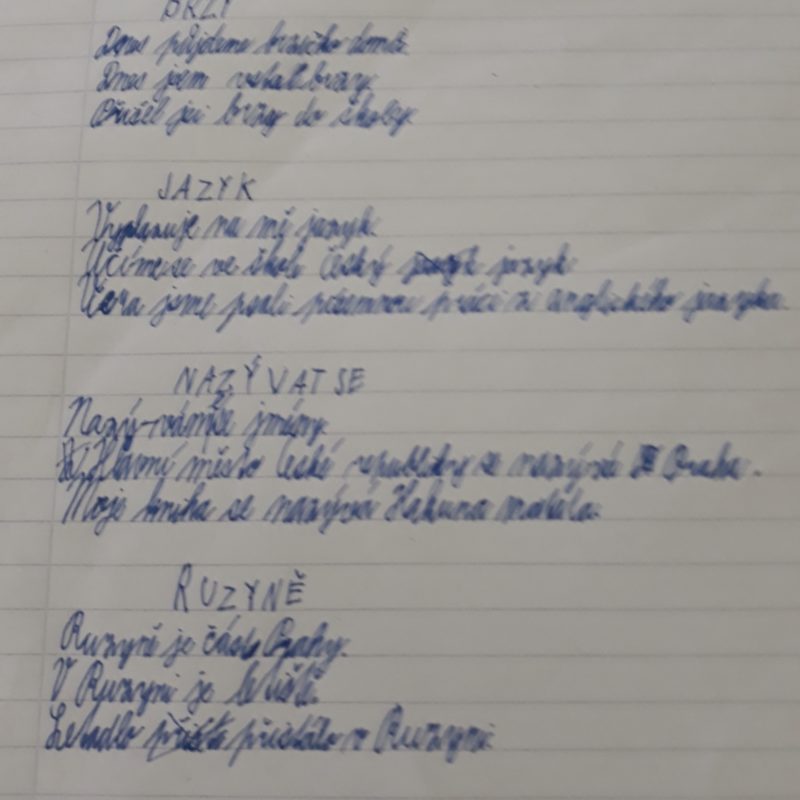 BRZY
Dnes půjdeme brzičko domů.
Dnes jsem vstal brzy.
jsi brzy do školy.
JAZYK
Vyplazuje na mě jazyk.
Učíme se ve škole český jazyk
Včera jsme psali písemnou práci z anglického jazyka.
NAZÝVAT SE
jmény.
Hlavní město České republiky se nazývá Praha.
Moje kniha se nazývá Hakuna matata.
RUZYNĚ
Ruzyně je část Prahy.
V Ruzyni je letiště.
Letadlo přistálo v Ruzyni.